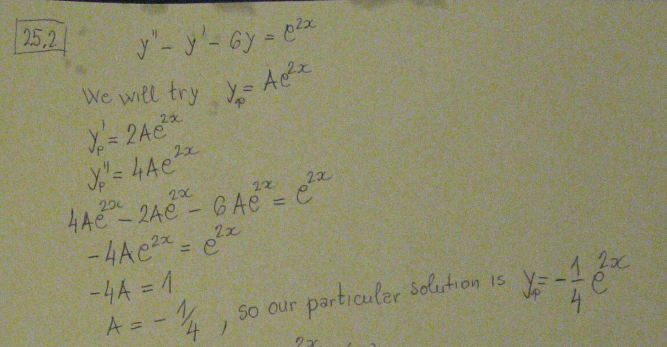 25.2 y'' - y' - 6y = e^{2x}
We will try y_p = Ae^{2x}
y_p' = 2Ae^{2x}
y_p'' = 4Ae^{2x}
4Ae^{2x} - 2Ae^{2x} - 6Ae^{2x} = e^{2x}
-4Ae^{2x} = e^{2x}
-4A = 1
A = -1/4, so our particular solution is y_p = -\frac{1}{4}e^{2x}